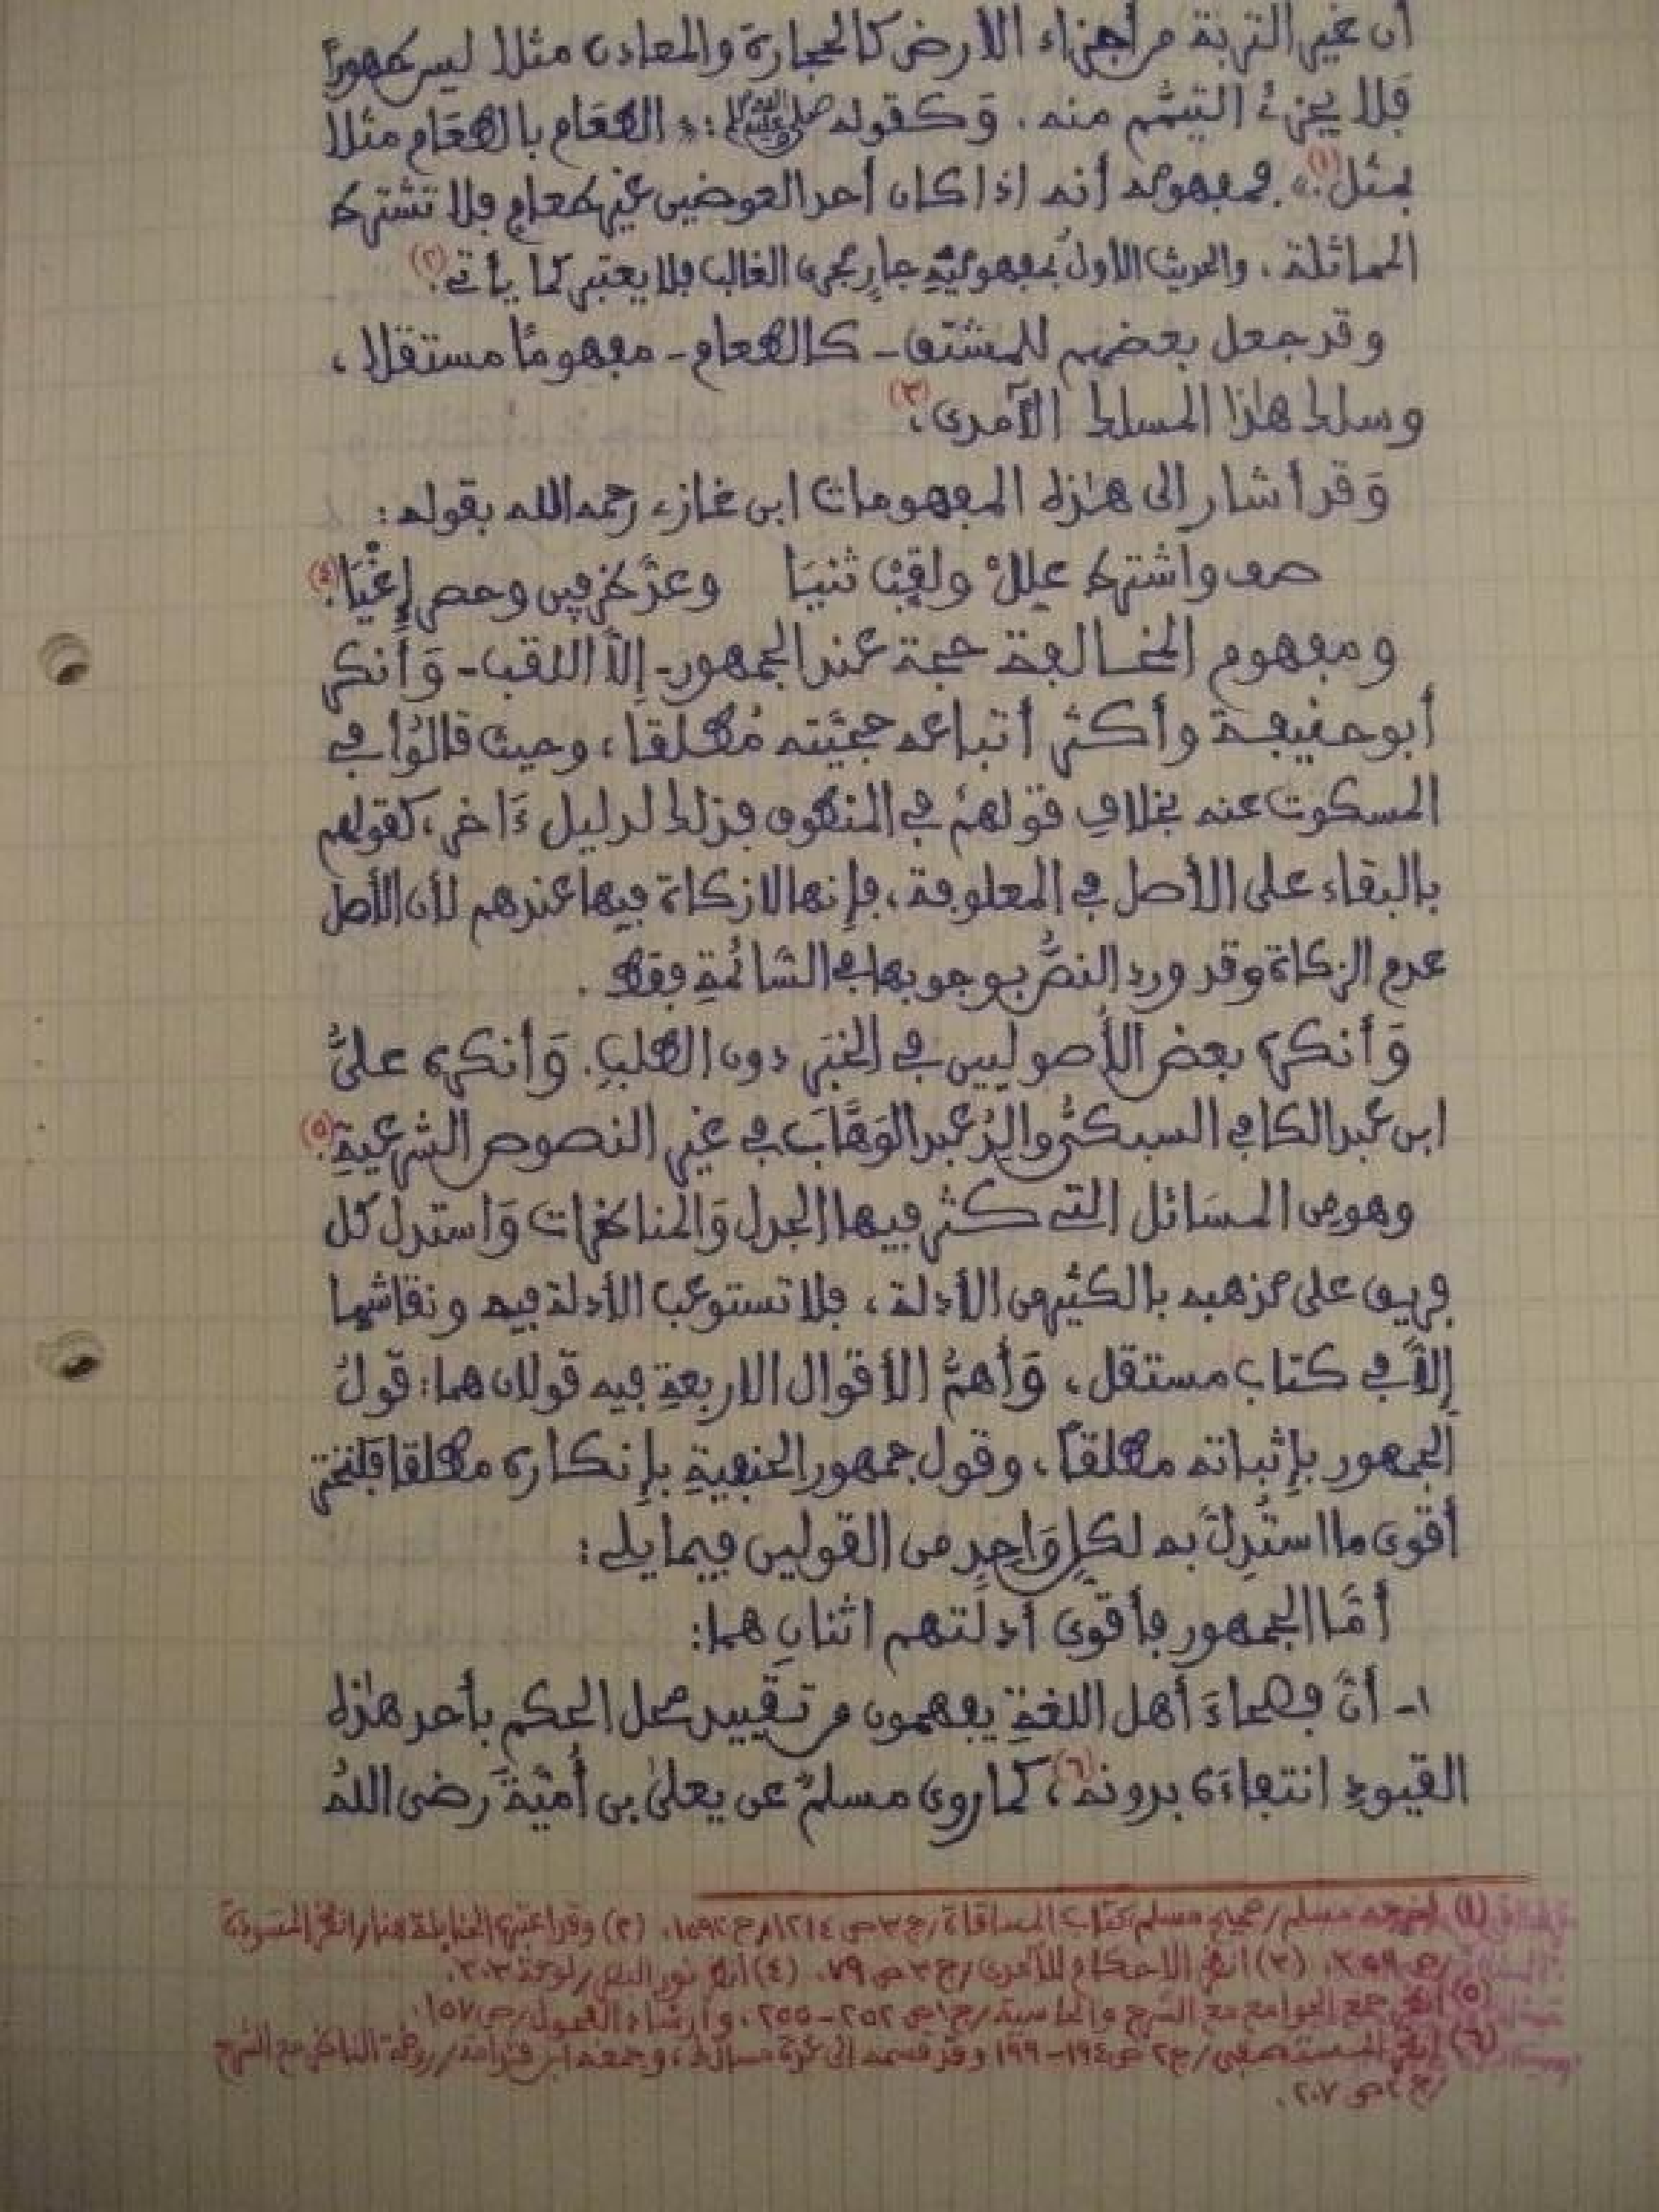 أن غير التربة من أجزاء الأرض كالحجارة والمعادن مثلا ليس طهوراً
فلا يجزئ التيمم منه. وَكقوله صلى الله عليه وسلم: «الطعَام بالطعَام مثلا
بمثل.»(١) فمفهومه أنه إذا كان أحد العوضين غير طعام فلا تشترط
المماثلة، والحديث الأول بمفهوميْهِ جارٍ مجرى الغالب فلا يعتبر كما يأتي.(٢)
وقد جعل بعضهم للمشتق - كالطعام - مفهومًا مستقلا،
وسلك هٰذا المسلك الآمدي،(٣)
وَقد أشار إلى هٰذه المفهومات ابن غازي رحمه الله بقوله:
صف واشترط علل ولقب ثنيا وعدّ ظرفين وحصر إغْيَا.(٤)
ومفهوم المخالفة حجة عند الجمهور - إلا اللقب - وَأنكر
أبو حنيفة وأكثر أتباعه حجيّته مُطلقا، وحيث قالوُا في
المسكوت عنه بخلافِ قولهمْ في المنطوق فذلك لدليل ءَاخر، كقولهم
بالبقاء على الأصل في المعلوفة، فإنها لا زكاة فيها عندهم لأن الأصل
عدم الزكاة وقد ورد النصُّ بوجوبها في السَّائمةِ فقط.
وَأنكره بعض الأصوليين في الخبَر دون الطلبِ. وَأنكره عليُّ
ابن عبد الكافي السبكيُّ والِدُ عبد الوَهَّاب في غير النصوص الشرعيةِ.(٥)
وهو من المسَائل التي كثر فيها الجدل وَالمناظرات وَاستدل كل
فريق على مذهبه بالكثير من الأدلة، فلا تستوعب الأدلة فيه ونقاشها
إلاَّ في كتاب مستقل، وَأهمُّ الأقوال الاربعةِ فيه قولان هما: قولُ
الجمهور بإثباته مطلقاً، وقول جمهور الحنفيةِ بإنكاره مطلقا فلنختر
أقوى ما استُدِلّ به لكلِ وَاحِدٍ من القولين فيما يلي:
أمَّا الجمهور فأقوَى أدلتهم اثنانِ هما:
١- أنّ فصحاءَ أهل اللغةِ يفهمون من تقييد محل الحكم بأحد هٰذه
القيودِ انتفاءَهُ بدونه(٦)، كما روى مسلمٌ عن يعلىٰ بن أميّةَ رضي اللهُ
(١) أخرجه مسلم/ صحيح مسلم كتاب المساقاة/ ج٣ ص ١٢١٤ رح ١٥٩٢. (٢) وقد اعتبره الحنابلة هنا، انظر المسودة
/ص ٣٥٩. (٣) انظر الإحكام للآمدي/ ج٣ ص ٧٩. (٤) انظر نور البصر/ لوحة ٣٠٣.
(٥) انظر جمع الجوامع مع الشرح والحاشية/ ج١ ص ٢٥٢-٢٥٥، وإرشاد الفحول/ ص ١٥٧.
(٦) انظر المستصفى/ ج٢ ص ١٩٤-١٩٩ وقد قسمه إلى عدة مسالك، وجمعه ابن قدامة/ روضة الناظر مع الشرح
/ج٢ ص ٢٠٧.